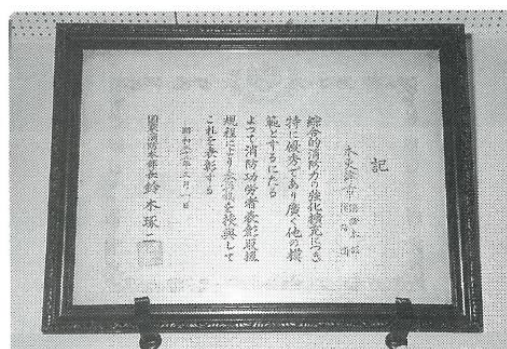 記
木更津市消防本部
消防団
綜合的消防力の強化擴充につき
特に優秀であり廣く他の模
範とするにたる
よつて消防功労者表彰規
規程により を授與して
これを表彰する
昭和 年三月一日
国家消防本部長 鈴木琢二